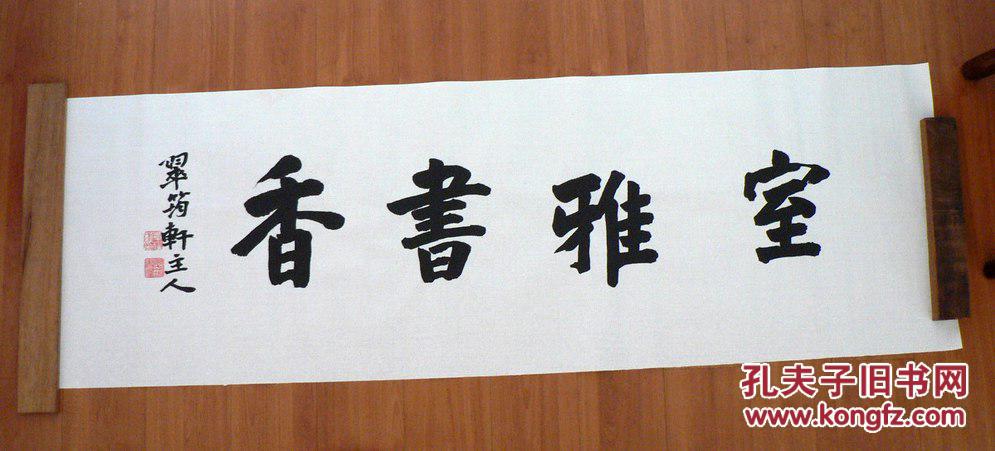 室雅書香
翠筠軒主人
孔夫子旧书网
www.kongfz.com